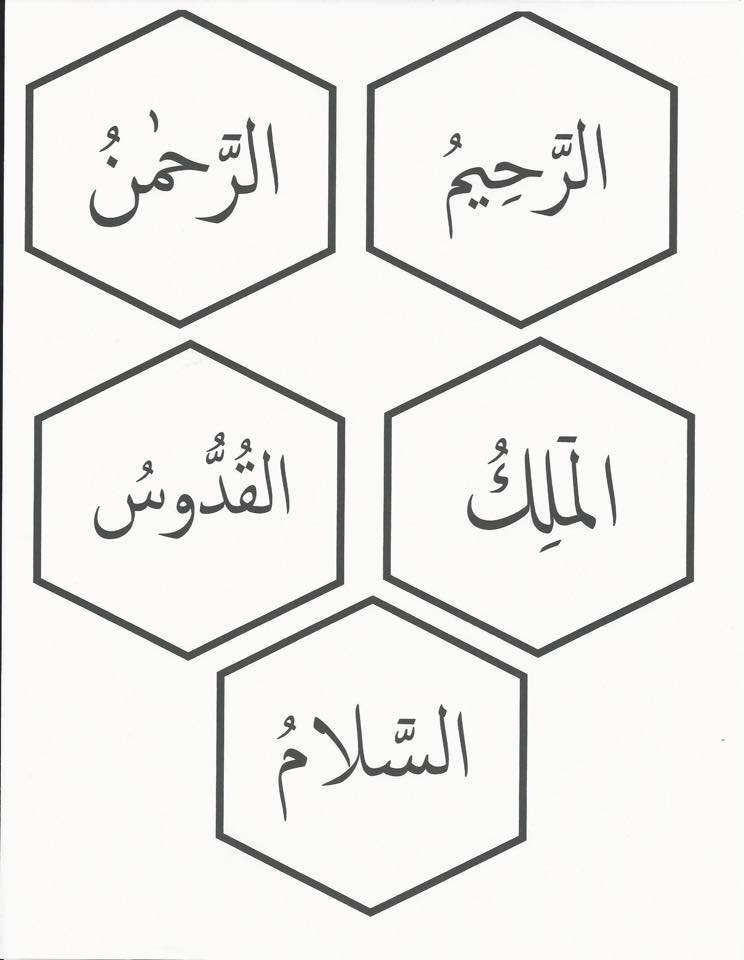 الرَّحْمٰنُ
الرَّحِيمُ
القُدُّوسُ
المَلِكُ
السَّلَامُ